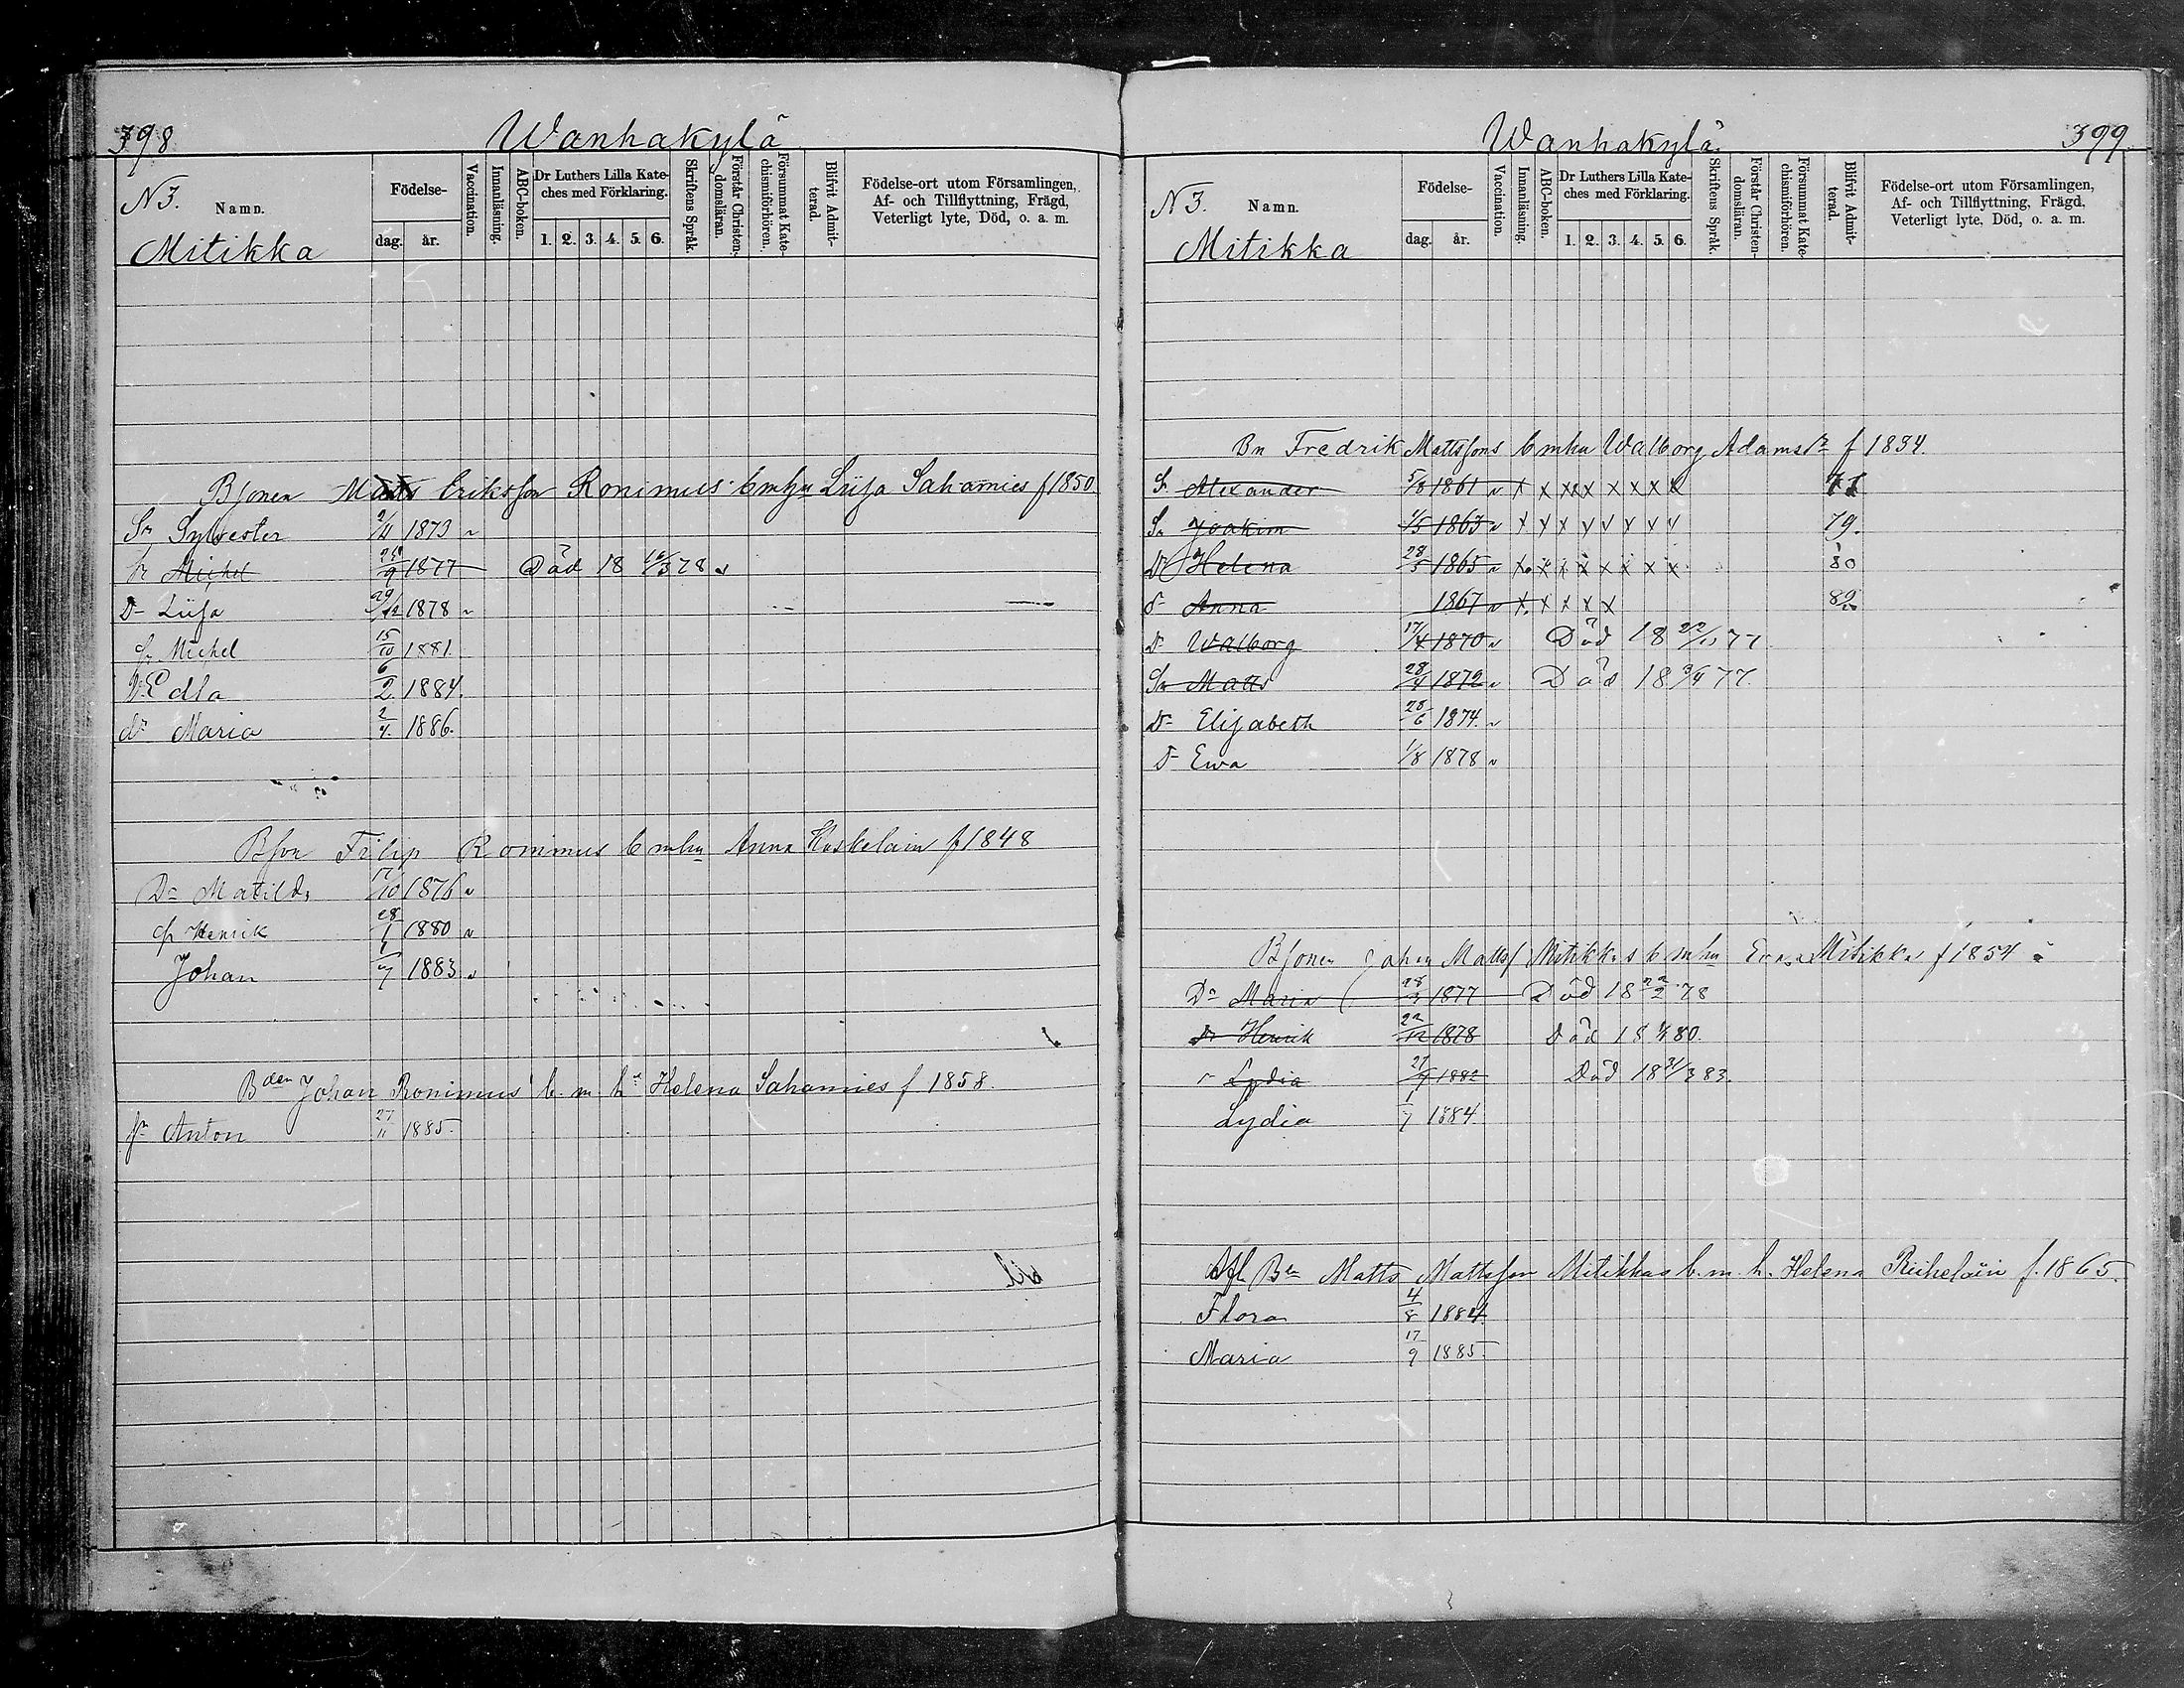 398 Wanhakylä
N 3. Namn. Mitikka
Födelse- dag. år.
Vaccination.
Innanläsning.
ABC-boken.
Dr Luthers Lilla Kateches med Förklaring.
1. 2. 3. 4. 5. 6.
Skriftens Språk.
Förstår Christendomsläran.
Försummat Katechismiförhören.
Blifvit Admitterad.
Födelse-ort utom Församlingen, Af- och Tillflyttning, Frägd, Veterligt lyte, Död, o. a. m.
Bsonen Matts Eriksson Ronimus b mhu Liisa Sahamies f 1850
Sn Sylvester 2/11 1873 v
Sn Michel 29/9 1877 Död 18 16/3 78 v
Dr Liisa 29/12 1878 v
Sn Michel 15/10 1881.
Dr Edla 6/2 1884.
dr Maria 2/4 1886.
Bson Filip Ronimus b mhu Anna f 1848
Dr Matilda 17/10 1876 v
Sn Henrik 28/1 1880 v
Johan 1/7 1883 v
Bden Johan Ronimus b. m. h Helena Sahamies f 1858.
Sn Anton 27/11 1885.
Wanhakylä 399.
N 3. Namn. Mitikka
Födelse- dag. år.
Vaccination.
Innanläsning.
ABC-boken.
Dr Luthers Lilla Kateches med Förklaring.
1. 2. 3. 4. 5. 6.
Skriftens Språk.
Förstår Christendomsläran.
Försummat Katechismiförhören.
Blifvit Admitterad.
Födelse-ort utom Församlingen, Af- och Tillflyttning, Frägd, Veterligt lyte, Död, o. a. m.
Bn Fredrik Mattssons b mhu Walborg Adamsdr f 1834.
S. Alexander 5/8 1861 v x x x x x x x x x
Sn Joakim 1/5 1863 v x x x x x x x x 79.
Dr Helena 28/5 1865 v x x x x x x x x 80
dr Anna 1867 v x x x x x 82
Dr Walborg 17/4 1870 v Död 18 22/11 77
Sn Matts 28/4 1872 v Död 18 3/4 77.
Dr Elisabeth 28/6 1874. v
Dr Ewa 1/8 1878 v
Bsonen Johan Matts Mitikkas b mhu Mitikka f 1854
Dr Maria 28/3 1877 Död 18 22/2 78
Henrik 22/12 1878 Död 18 80.
Lydia 27/9 1882 Död 18 31/3 83.
Lydia 1/7 1884.
Afl. Bn Matts Mattsson Mitikkas b. m. h. Helena f. 1865.
Flora 4/8 1884
Maria 17/9 1885.